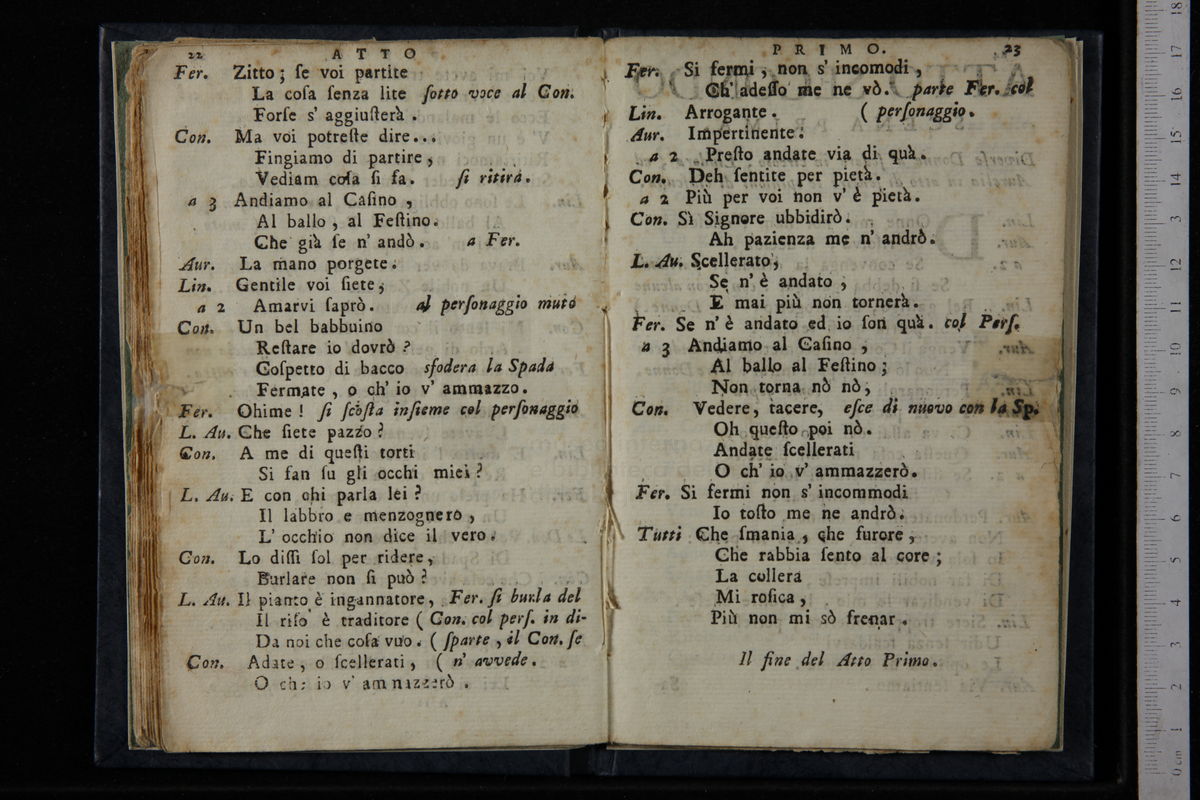 22 ATTO
Fer. Zitto; ſe voi partite
La coſa ſenza lite ſotto voce al Con.
Forſe s' aggiuſterà.
Con. Ma voi potreſte dire...
Fingiamo di partire,
Vediam coſa ſi fa. ſi ritira.
a 3 Andiamo al Caſino,
Al ballo, al Feſtino.
Che già ſe n' andò. a Fer.
Aur. La mano porgete.
Lin. Gentile voi ſiete,
a 2 Amarvi ſaprò. al perſonaggio muto
Con. Un bel babbuino
Reſtare io dovrò?
Coſpetto di bacco sfodera la Spada
Fermate, o ch' io v' ammazzo.
Fer. Ohime! ſi ſcoſta inſieme col perſonaggio
L. Au. Che ſiete pazzo?
Con. A me di queſti torti
Si fan ſu gli occhi miei?
L. Au. E con chi parla lei?
Il labbro e menzognero,
L' occhio non dice il vero.
Con. Lo diſſi ſol per ridere,
Burlare non ſi può?
L. Au. Il pianto è ingannatore, Fer. ſi burla del
Il riſo è traditore (Con. col perſ. in di-
Da noi che coſa vuo. (ſparte, il Con. ſe
Con. Adate, o ſcellerati, (n' avvede.
O ch: io v' ammazzerò.
PRIMO. 23
Fer. Si fermi, non s' incomodi,
Ch' adeſſo me ne vò. parte Fer. col
Lin. Arrogante. (perſonaggio.
Aur. Impertinente.
a 2 Preſto andate via di quà.
Con. Deh ſentite per pietà.
a 2 Più per voi non v' è pietà.
Con. Sì Signore ubbidirò.
Ah pazienza me n' andrò.
L. Au. Scellerato,
Se n' è andato,
E mai più non tornerà.
Fer. Se n' è andato ed io ſon quà. col Perſ.
a 3 Andiamo al Caſino,
Al ballo al Feſtino;
Non torna nò nò,
Con. Vedere, tacere, eſce di nuovo con la Sp.
Oh queſto poi nò.
Andate ſcellerati
O ch' io v' ammazzerò.
Fer. Si fermi non s' incommodi
Io toſto me ne andrò.
Tutti Che ſmania, che furore,
Che rabbia ſento al core;
La collera
Mi roſica,
Più non mi sò frenar.
Il fine del Atto Primo.